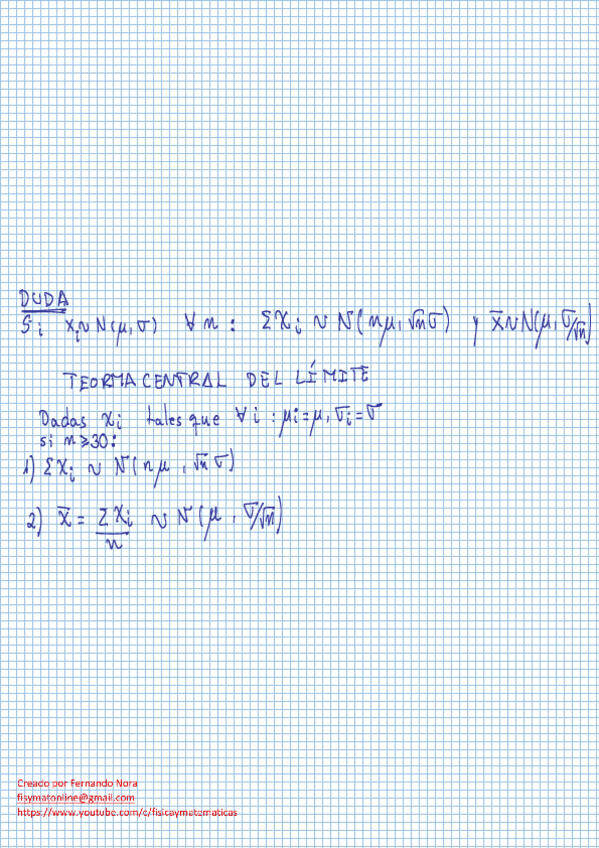 DUDA
Si xi ~ N(μ, σ) ∀ n : Σxi ~ N(nμ, √nσ) y x̄ ~ N(μ, σ/√n)
TEORMA CENTRAL DEL LÍMITE
Dadas xi tales que ∀ i : μi = μ, σi = σ
si n ≥ 30:
1) Σxi ~ N(nμ, √n σ)
2) x̄ = Σxi/n ~ N(μ, σ/√n)
Creado por Fernando Nora
fisymatonline@gmail.com
https://www.youtube.com/c/fisicaymatematicas